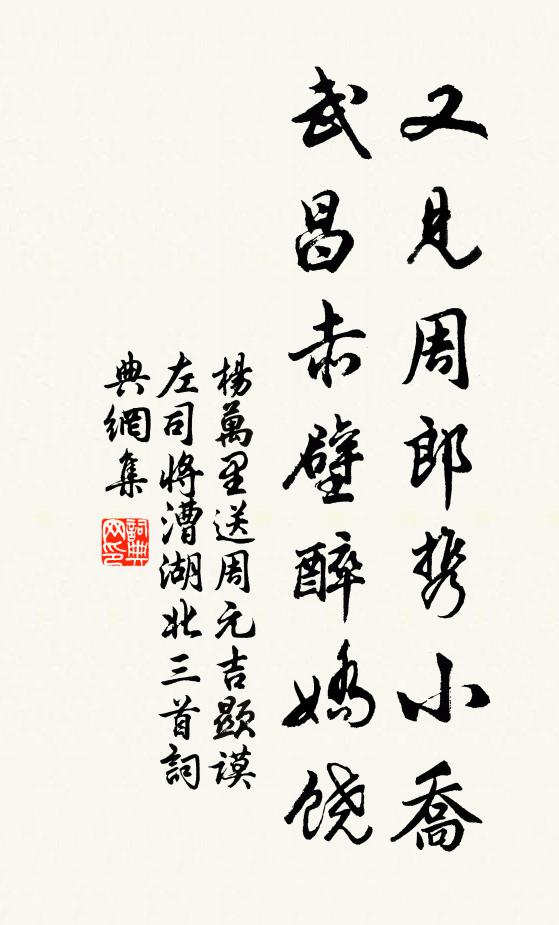 又見周郎携小喬
武昌赤壁醉嬌饶
楊萬里送周元吉顯謨
左司將漕湖北三首詞
典網集
詞典
网印